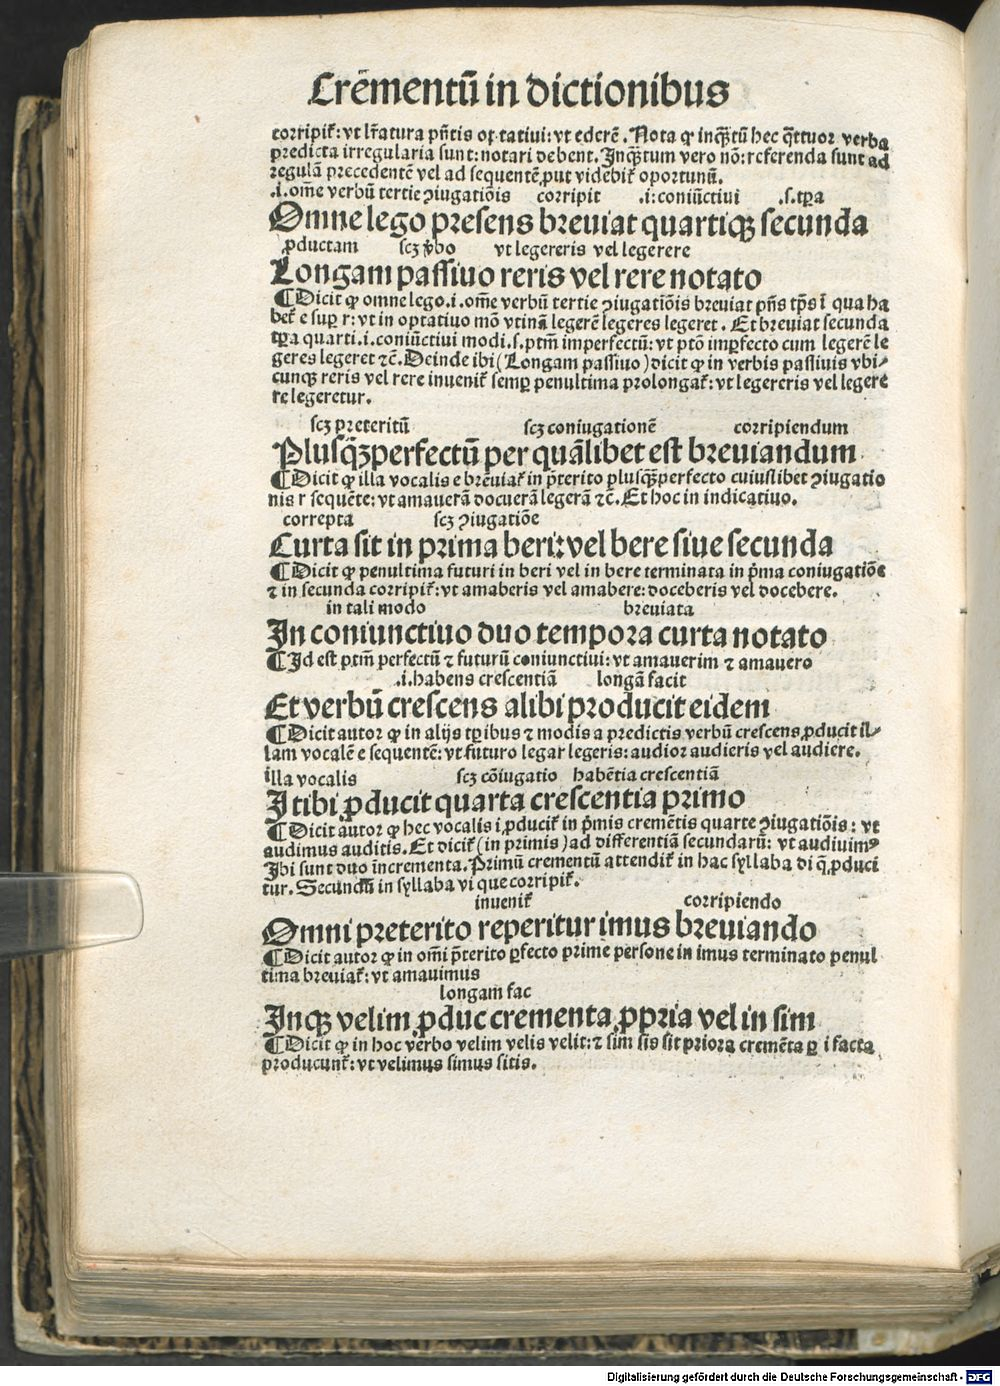 Cremẽntũ in dictionibus
corripiť: vt lr̃atura pñtis optatiui: vt ederẽ. Nota ꝙ inq̃ꝫtũ hec q̃ttuor verba
predicta irregularia sunt: notari debent. Inqꝫtum vero nõ: referenda sunt ad
regulã precedentẽ vel ad sequentẽ ꝓut videbiť oportunũ.
.i. om̃e verbũ tertie ꝯiugatiõis corripit .i: coniũctiui .s. tꝑa
Omne lego presens breuiat quartiqꝫ secunda
ꝓductam scꝫ ṽbo vt legereris vel legerere
Longam passiuo reris vel rere notato
¶ Dicit ꝙ omne lego .i. om̃e verbũ tertie ꝯiugatiõis breuiat pñs tp̃s ĩ qua ha
beť e suꝑ r: vt in optatiuo mõ vtinã legerẽ legeres legeret. Et breuiat secunda
tꝑa quarti .i. coniũctiui modi .s. ptm̃ imperfectũ: vt ptõ imꝑfecto cum legerẽ le
geres legeret ⁊c̃. Deinde ibi (Longam passiuo) dicit ꝙ in verbis passiuis vbi⸗
cunqꝫ reris vel rere inueniť semꝑ penultima prolongať: vt legereris vel legere
re legeretur.
scꝫ preteritũ scꝫ coniugationẽ corripiendum
Plusq̃ꝫperfectũ per quãlibet est breuiandum
¶ Dicit ꝙ illa vocalis e brẽuiať in p̃terito plusqꝫperfecto cuiuslibet ꝯiugatio
nis r sequẽte: vt amauerã docuerã legerã ⁊c̃. Et hoc in indicatiuo.
correpta scꝫ ꝯiugatiõe
Curta sit in prima beri: vel bere siue secunda
¶ Dicit ꝙ penultima futuri in beri vel in bere terminata in p̃ma coniugatiõe
⁊ in secunda corripiť: vt amaberis vel amabere: doceberis vel docebere.
in tali modo breuiata
In coniunctiuo duo tempora curta notato
¶ Id est ptm̃ perfectũ ⁊ futurũ coniunctiui: vt amauerim ⁊ amauero
.i. habens crescentiã longã facit
Et verbũ crescens alibi producit eidem
¶ Dicit autor ꝙ in alijs tꝑibus ⁊ modis a predictis verbũ crescens ꝓducit il⸗
lam vocalẽ e sequentẽ: vt futuro legar legeris: audior audieris vel audiere.
illa vocalis scꝫ cõiugatio habẽtia crescentiã
I tibi ꝓducit quarta crescentia primo
¶ Dicit autor ꝙ hec vocalis i ꝓduciť in p̃mis cremẽtis quarte ꝯiugatiõis: vt
audimus auditis. Et diciť (in primis) ad differentiã secundarũ: vt audiuimꝰ
Ibi sunt duo ĩncrementa. Primũ crementũ attendiť in hac syllaba di q̃ ꝓduci
tur. Secundũ in syllaba vi que corripiť.
inueniť corripiendo
Omni preterito reperitur imus breuiando
¶ Dicit autor ꝙ in om̃i p̃terito ꝑfecto prime persone in imus terminato penul
tima breuiať: vt amauimus
longam fac
Inqꝫ velim ꝓduc crementa ꝓpria vel in sim
¶ Dicit ꝙ in hoc verbo velim velis velit: ⁊ sim sis sit priora cremẽta ꝑ i facta
producunť: vt velimus simus sitis.
Digitalisierung gefördert durch die Deutsche Forschungsgemeinschaft - DFG